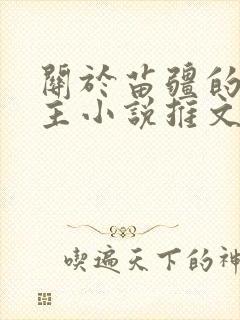 關於苗疆的
主小說推文
喫遍天下的神